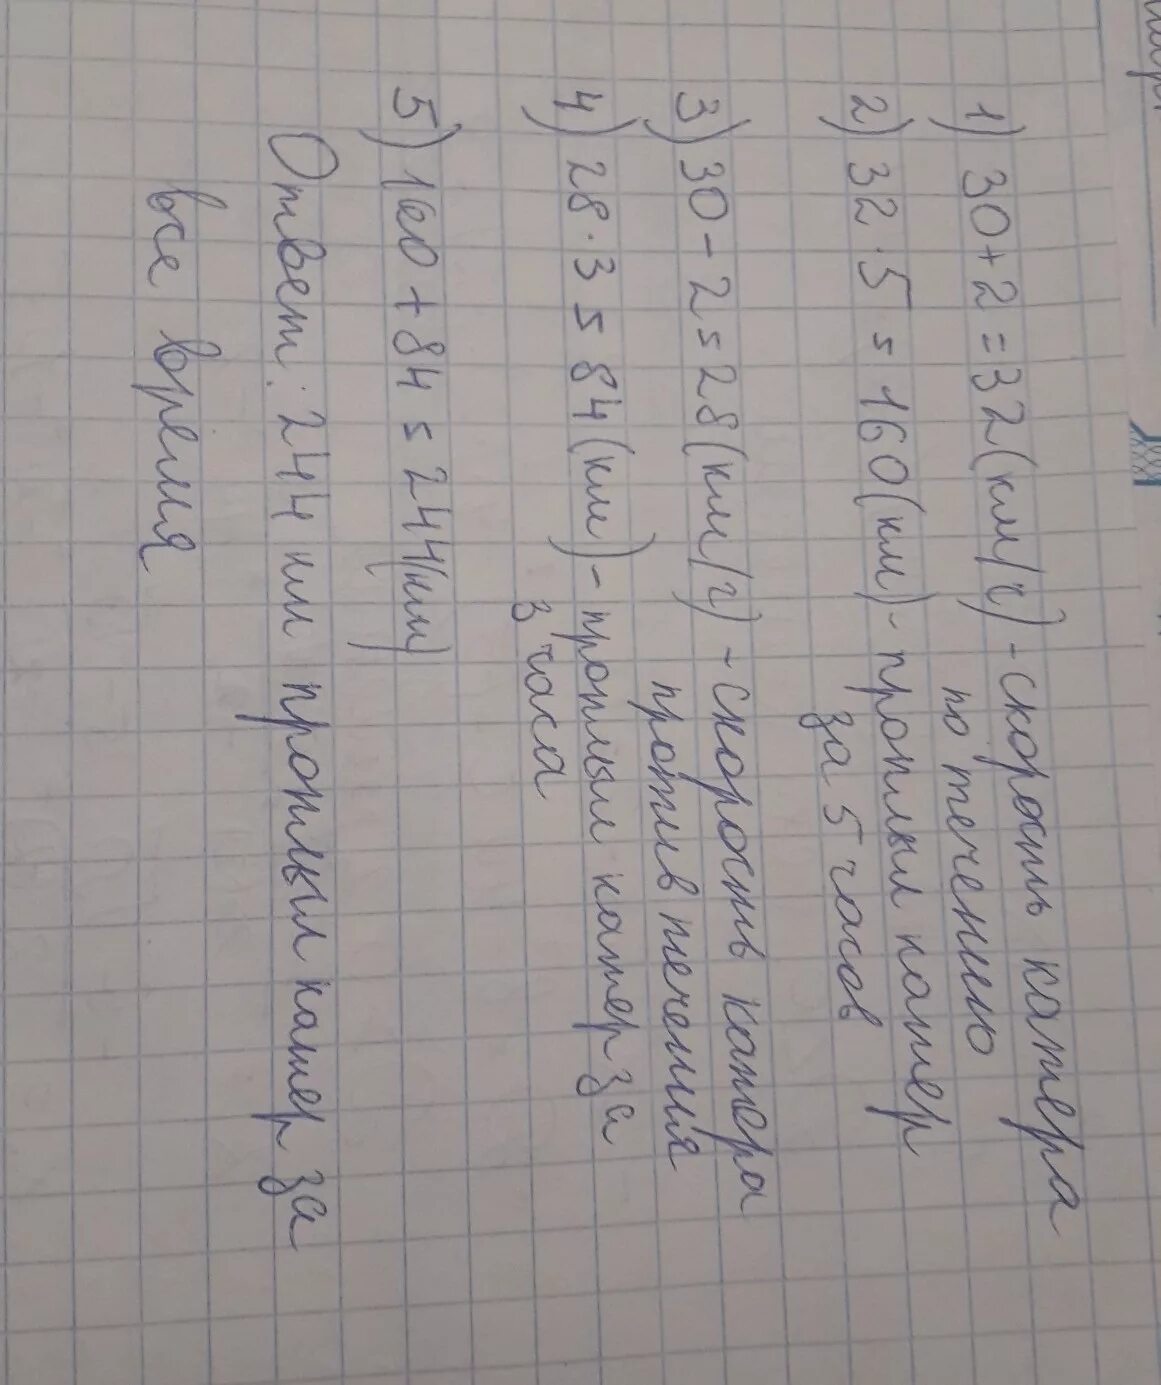 1) 30+2=32(км/ч)-скорость катера
по течению
2) 32·5=160(км)-проплыл катер
за 5 часов
3) 30-2=28(км/ч)-скорость катера
против течения
4) 28·3=84(км)-проплыл катер за
3 часа
5) 160+84=244(км)
Ответ: 244 км проплыл катер за
все время